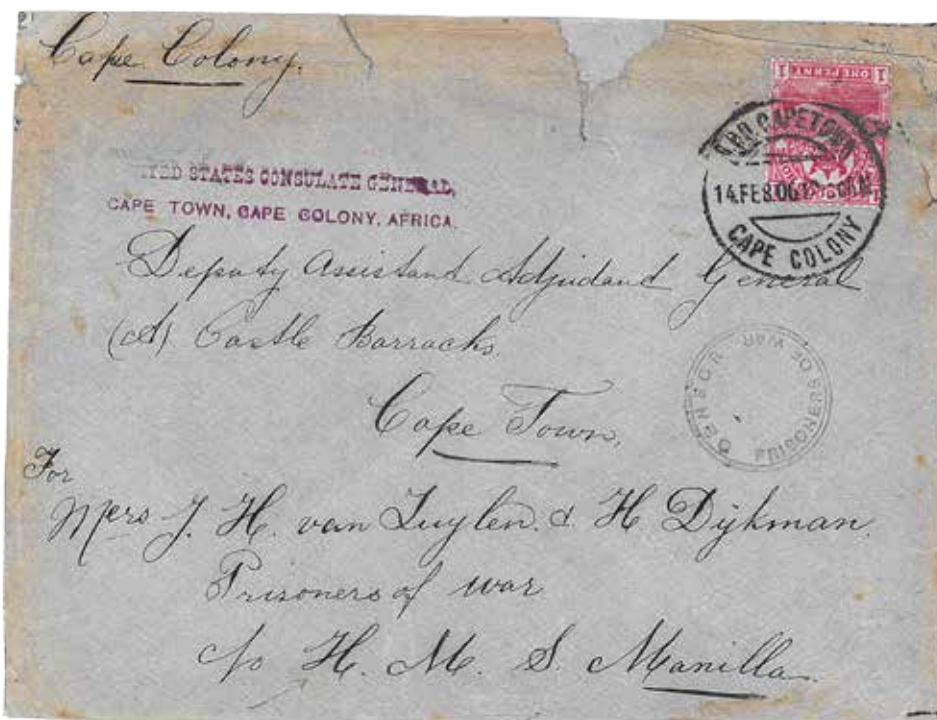 Cape Colony.
ONE PENNY
G.P.O. CAPETOWN
14.FEB.00
CAPE COLONY
UNITED STATES CONSULATE GENERAL,
CAPE TOWN, CAPE COLONY, AFRICA.
Deputy Assistand Adjudand General
(A) Castle Barracks.
CENSOR PRISONERS OF WAR
Cape Town.
For
Mers J. H. van Zuylen. & H Dijkman.
Prisoners of war
c/o H. M. S. Manilla.